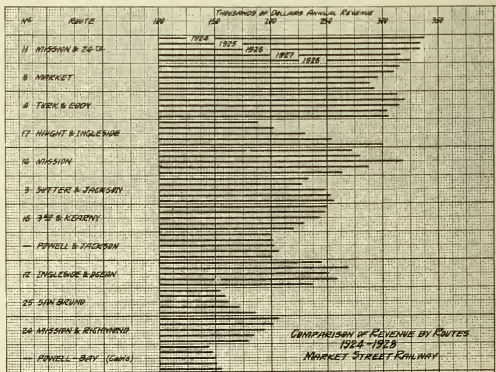 THOUSANDS OF DOLLARS ANNUAL REVENUE
No. ROUTE 100 150 200 250 300 350
1924
1925
1926
1927
1928
11 MISSION & 24TH
8 MARKET
4 TURK & EDDY
17 HAIGHT & INGLESIDE
14 MISSION
3 SUTTER & JACKSON
16 3RD & KEARNY
— POWELL & JACKSON
12 INGLESIDE & OCEAN
25 SAN BRUNO
24 MISSION & RICHMOND
— POWELL-BAY (Cable)
COMPARISON OF REVENUE BY ROUTES
1924-1928
MARKET STREET RAILWAY